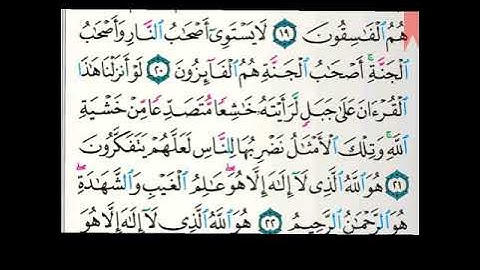 هُمُ ٱلْفَـٰسِقُونَ ١٩ لَا يَسْتَوِىٓ أَصْحَـٰبُ ٱلنَّارِ وَأَصْحَـٰبُ
ٱلْجَنَّةِ ۚ أَصْحَـٰبُ ٱلْجَنَّةِ هُمُ ٱلْفَآئِزُونَ ٢٠ لَوْ أَنزَلْنَا هَـٰذَا
ٱلْقُرْءَانَ عَلَىٰ جَبَلٍ لَّرَأَيْتَهُۥ خَـٰشِعًا مُّتَصَدِّعًا مِّنْ خَشْيَةِ
ٱللَّهِ ۚ وَتِلْكَ ٱلْأَمْثَـٰلُ نَضْرِبُهَا لِلنَّاسِ لَعَلَّهُمْ يَتَفَكَّرُونَ
٢١ هُوَ ٱللَّهُ ٱلَّذِى لَآ إِلَـٰهَ إِلَّا هُوَ ۖ عَـٰلِمُ ٱلْغَيْبِ وَٱلشَّهَـٰدَةِ ۖ
هُوَ ٱلرَّحْمَـٰنُ ٱلرَّحِيمُ ٢٢ هُوَ ٱللَّهُ ٱلَّذِى لَآ إِلَـٰهَ إِلَّا هُوَ